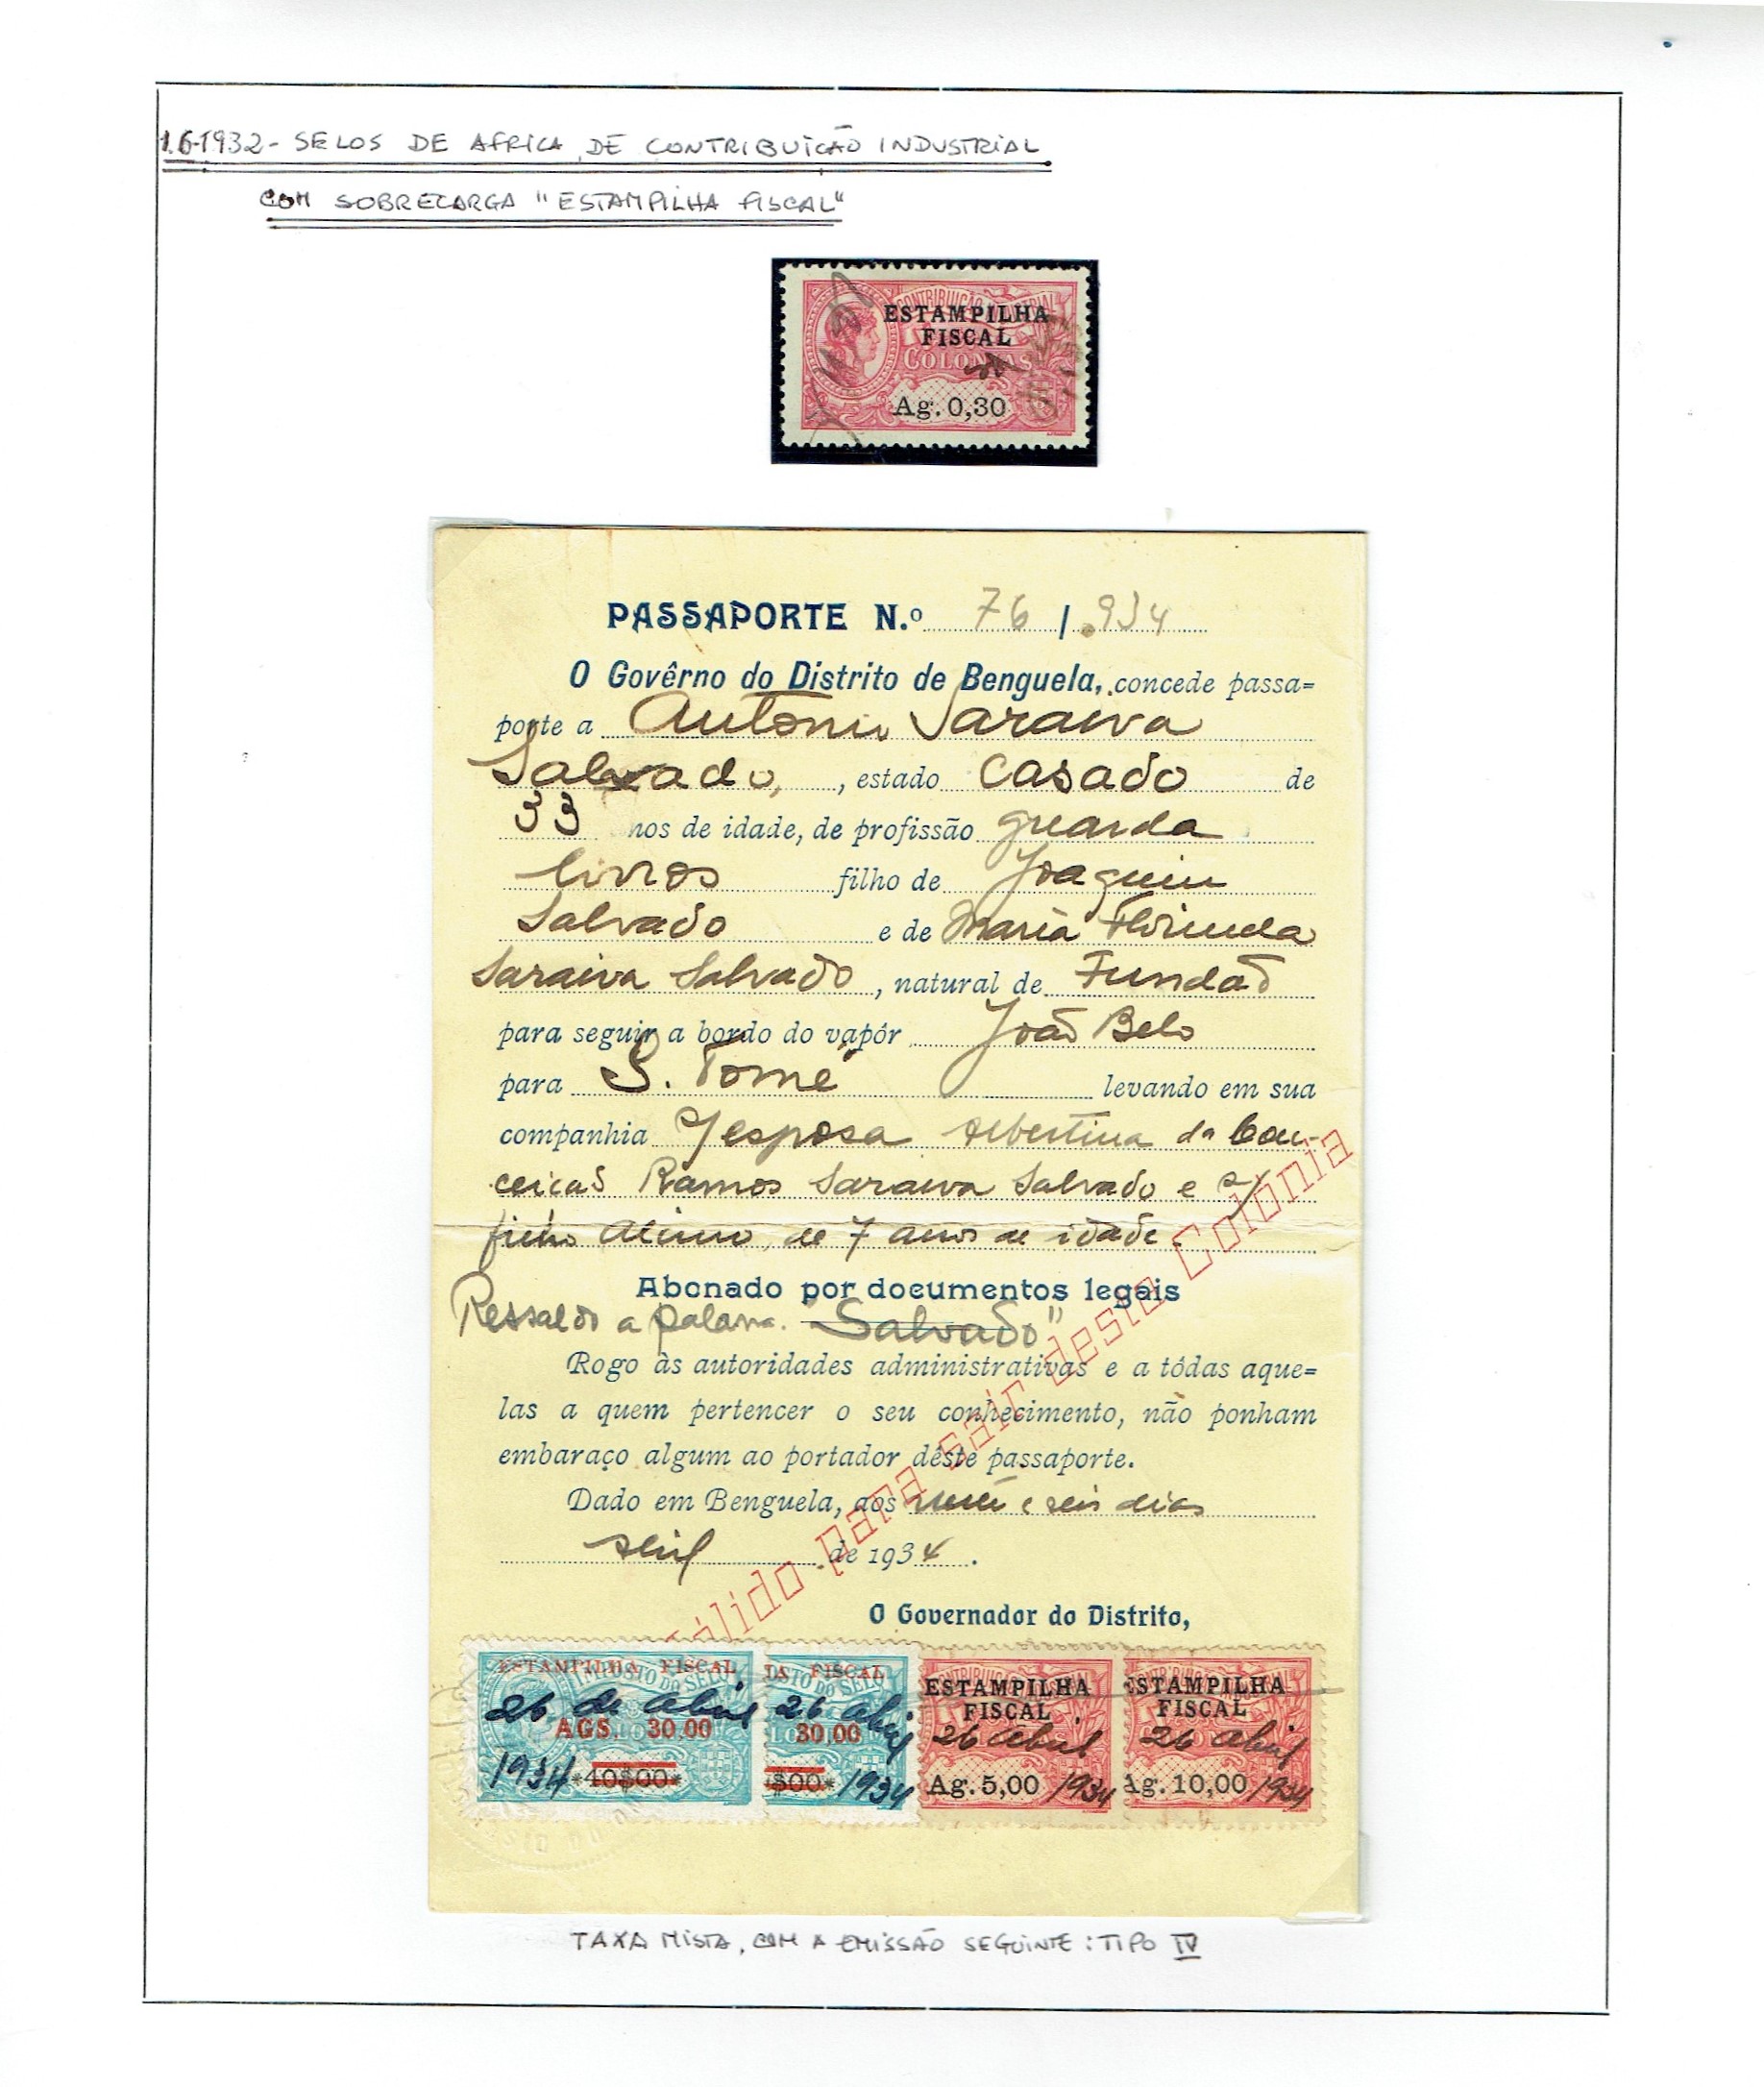 1.6-1932 - SELOS DE AFRICA, DE CONTRIBUIÇÃO INDUSTRIAL
COM SOBRECARGA "ESTAMPILHA FISCAL"
CONTRIBUIÇÃO INDUSTRIAL
ESTAMPILHA
FISCAL
COLONIAS
Ag. 0,30
PASSAPORTE N.º 76 / 934
O Govêrno do Distrito de Benguela, concede passa=
porte a António Saraiva
Salvado, , estado Casado de
33 nos de idade, de profissão guarda
livros filho de Joaquim
Salvado e de Maria Florinda
Saraiva Salvado, natural de Fundão
para seguir a bordo do vapôr João Belo
para S. Tomé levando em sua
companhia s/esposa Albertina da Con-
ceicão Ramos Saraiva Salvado e s/
filho Alcino, de 7 anos de idade.
Abonado por documentos legais
Ressalvo a palavra "Salvado"
Rogo às autoridades administrativas e a tôdas aque=
las a quem pertencer o seu conhecimento, não ponham
embaraço algum ao portador dêste passaporte.
Dado em Benguela, aos vinte e seis dias
Abril de 1934.
álido para sair desta Colónia
O Governador do Distrito,
ESTAMPILHA FISCAL
IMPOSTO DO SELO
26 de Abril
AGS. 30,00
1934 *40$00*
LA FISCAL
STO DO SELO
26 Abril
30,00
$00* 1934
CONTRIBUIÇÃO
ESTAMPILHA
FISCAL
26 Abril
Ag. 5,00 1934
ESTAMPILHA
FISCAL
26 Abril
Ag. 10,00 1934
TAXA MISTA, COM A EMISSÃO SEGUINTE: TIPO IV